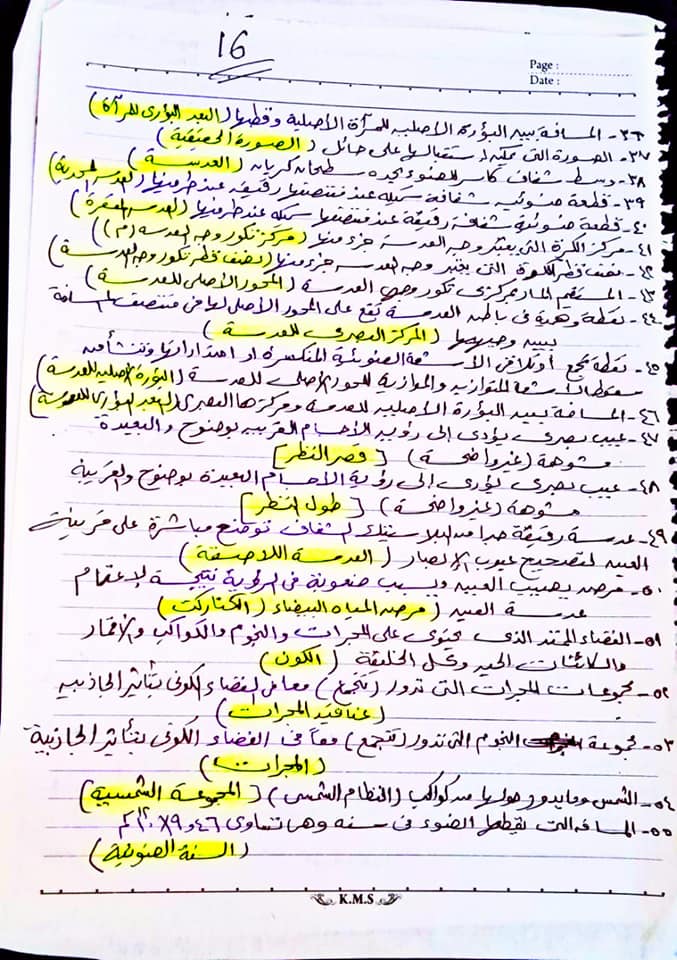 16
Page :
Date :
٣٦- المسافة بين البؤرة الأصلية للمرآة الأصلية وقطبها (البعد البؤرى للمرآة)
٣٧- الصورة التى يمكن استقبالها على حائل (الصورة الحقيقية)
٣٨- وسط شفاف كاسر للضوء يحده سطحان كريان (العدسة)
٣٩- قطعة ضوئية شفافة سميكة عند منتصفها رقيقة عند طرفيها (العدسة المحدبة)
٤٠- قطعة ضوئية شفافة رقيقة عند منتصفها سميكة عند طرفيها (العدسة المقعرة)
٤١- مركز الكرة التى يعتبر وجه العدسة جزء منها (مركز تكور وجه العدسة (م))
٤٢- نصف قطر الكرة التى يعتبر وجه العدسة جزء منها (نصف قطر تكور وجه العدسة)
٤٣- المستقيم المار بمركزى تكور وجهى العدسة (المحور الأصلى للعدسة)
٤٤- نقطة وهمية فى باطن العدسة تقع على المحور الأصلى لها فى منتصف المسافة
بين وجهيها (المركز البصرى للعدسة)
٤٥- نقطة تجمع أو تلاقى الأشعة الضوئية المنكسرة او امتداداتها وتنشأ من
سقوط الأشعة المتوازية والموازية للمحور الأصلى للعدسة (البؤرة الأصلية للعدسة)
٤٦- المسافة بين البؤرة الأصلية للعدسة ومركزها البصرى (البعد البؤرى للعدسة)
٤٧- عيب بصرى يؤدى الى رؤية الأجسام القريبة بوضوح والبعيدة
مشوهة (غير واضحة) [قصر النظر]
٤٨- عيب بصرى يؤدى الى رؤية الأجسام البعيدة بوضوح والقريبة
مشوهة (غير واضحة) [طول النظر]
٤٩- عدسة رقيقة جدا من البلاستيك الشفاف توضع مباشرة على قرنية
العين لتصحيح عيوب الإبصار (العدسة اللاصقة)
٥٠- مرض يصيب العين ويسبب صعوبة فى الرؤية نتيجة لإعتام
عدسة العين (مرض المياه البيضاء (الكتاركت)
٥١- الفضاء الممتد الذى يحتوى على المجرات والنجوم والكواكب والأقمار
والكائنات الحية وكل الخليقة (الكون)
٥٢- مجموعات المجرات التى تدور (تتجمع) معا فى الفضاء الكونى بتأثير الجاذبية
(عناقيد المجرات)
٥٣- مجموعة النجوم التى تدور (تتجمع) معاً فى الفضاء الكونى بتأثير الجاذبية
(المجرات)
٥٤- الشمس وما يدور حولها من كواكب (النظام الشمسى) (المجموعة الشمسية)
٥٥- المسافة التى يقطعها الضوء فى سنة وهى تساوى ٩٫٤٦ × ١٠^١٢ كم
(السنة الضوئية)
K.M.S